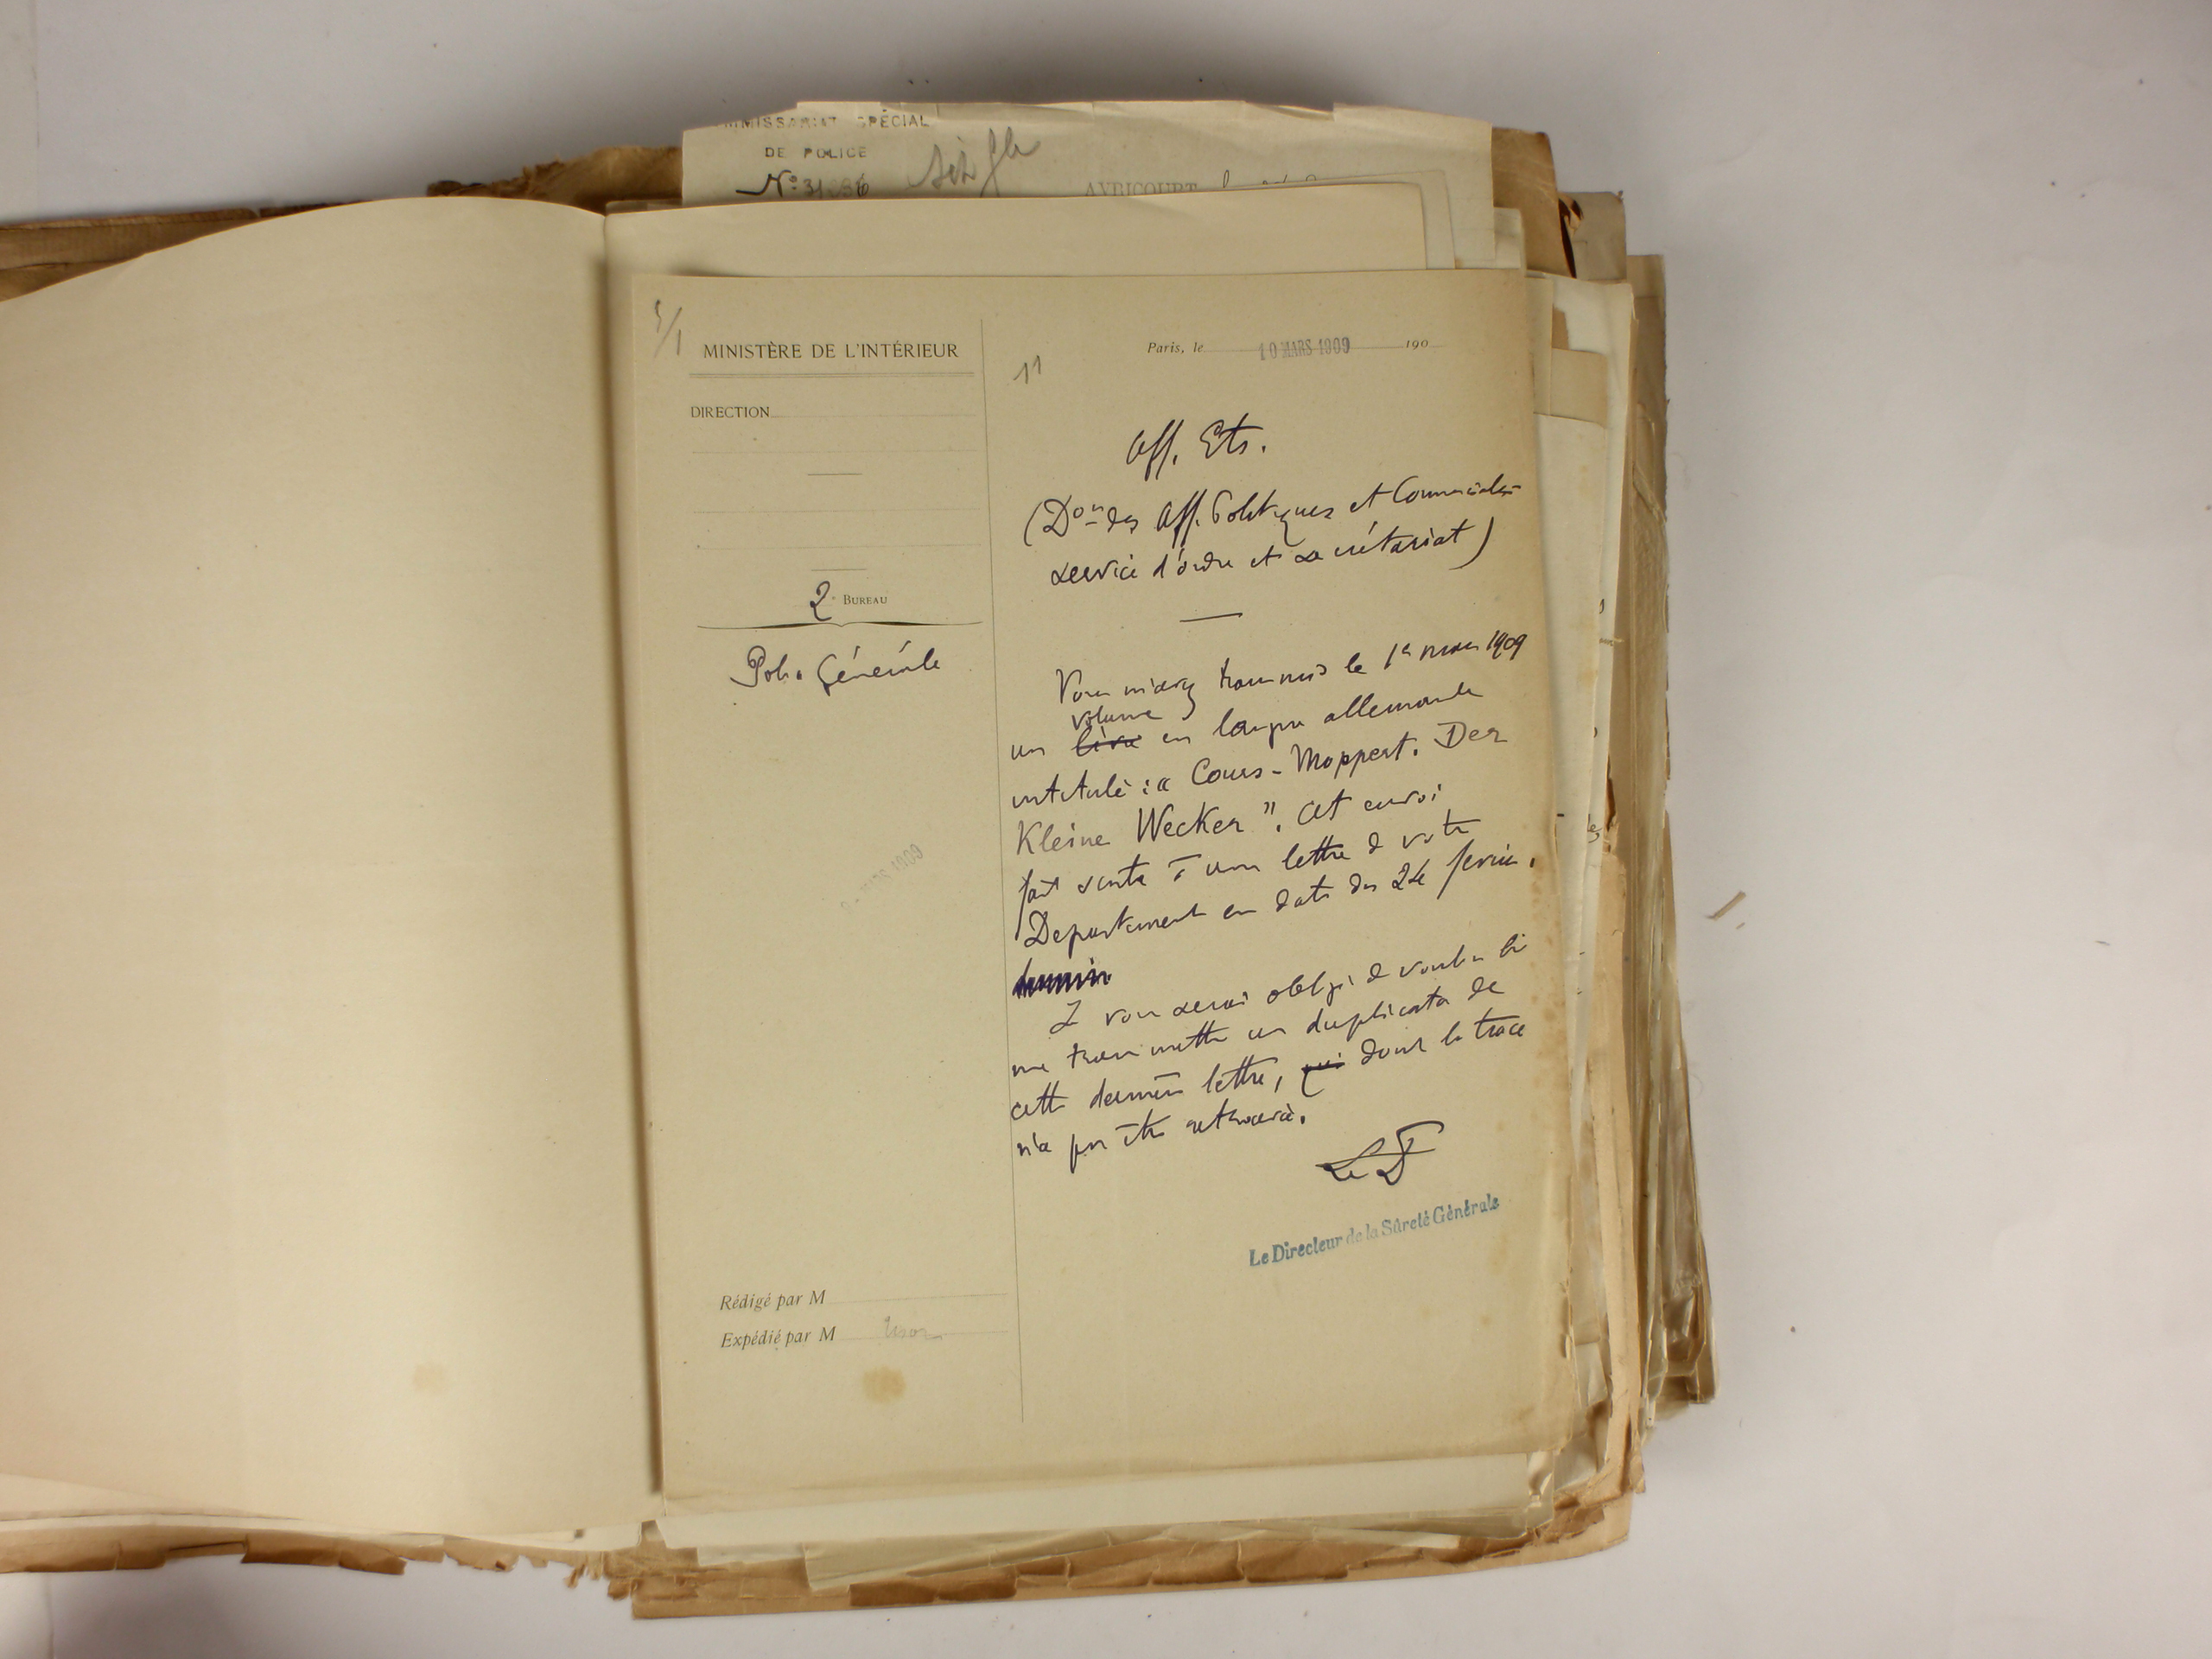 COMMISSARIAT SPÉCIAL
DE POLICE
AVRICOURT
MINISTÈRE DE L'INTÉRIEUR
DIRECTION
2e BUREAU
Pol. Générale
Rédigé par M
Expédié par M
Paris, le 10 MARS 1909 190
11
Aff. Etr.
(Don des Aff. Politiques et Commerciales
service d'ordre et secrétariat)
Vous m'avez transmis le 1er mars 1909
volume
un livre en langue allemande
intitulé : « Cours - Moppert. Der
Kleine Wecker ". Cet envoi
fait suite à une lettre de votre
Département en date du 24 février.
Je vous serai obligé de vouloir bien
me transmettre un duplicata de
cette dernière lettre, qui dont la trace
n'a pu être retrouvée.
Le D
Le Directeur de la Sûreté Générale